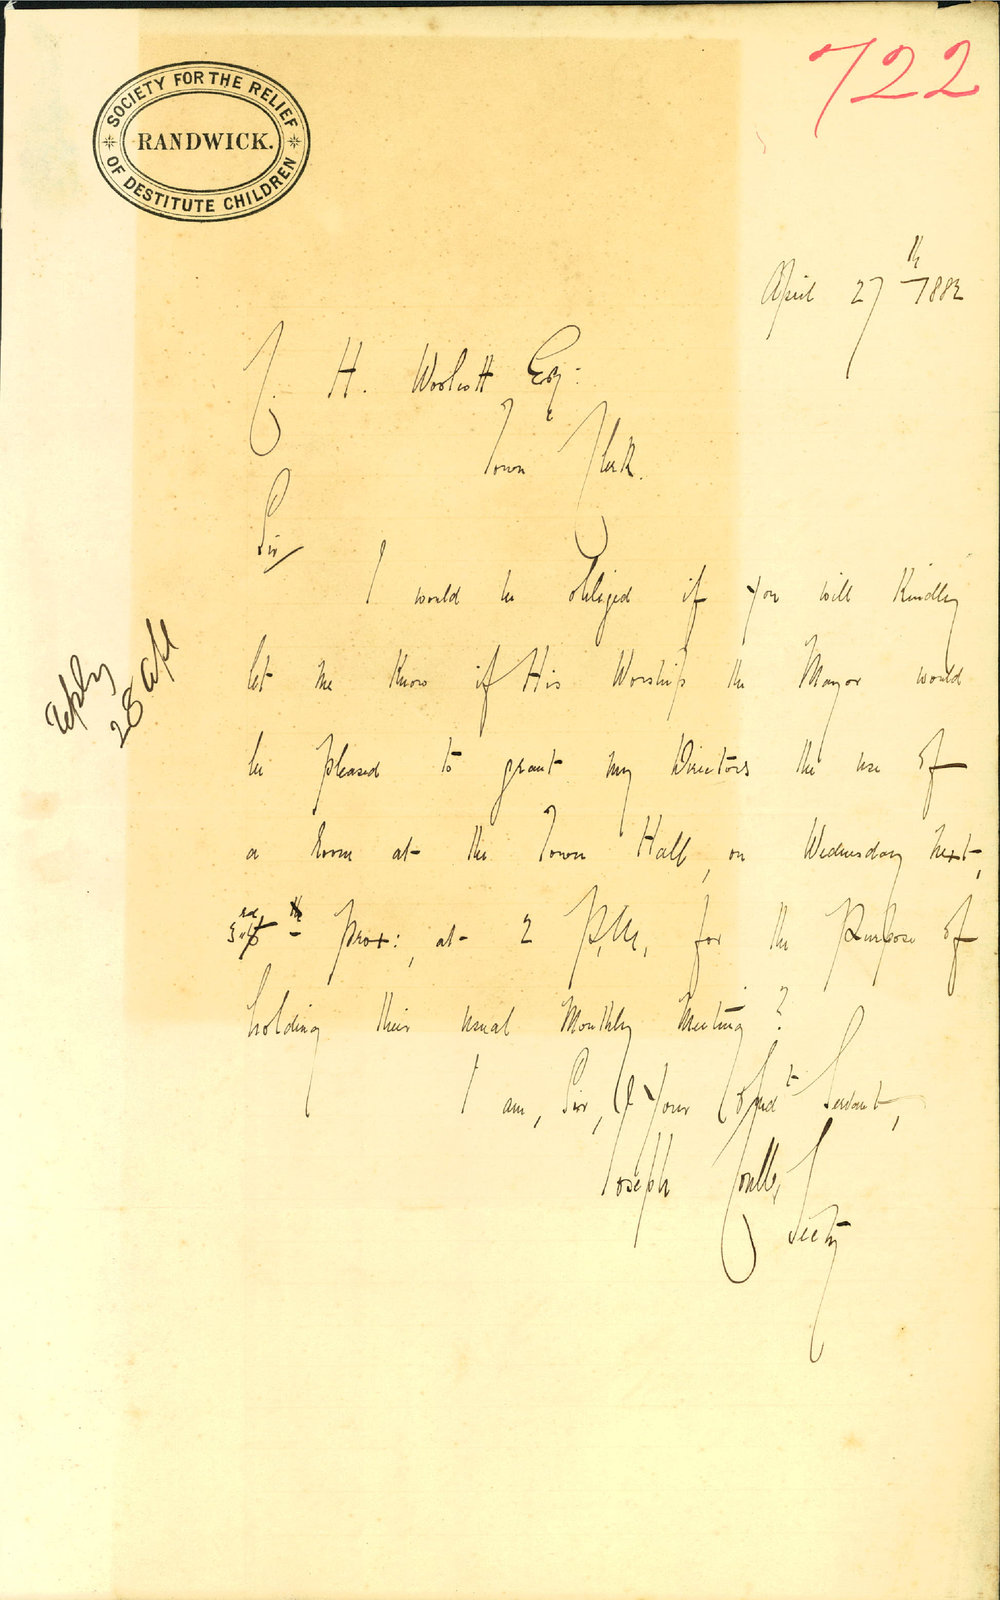 SOCIETY FOR THE RELIEF
OF DESTITUTE CHILDREN
RANDWICK.
722
April 27th 1882
C. H. Woolcott Esq:
Town Clerk.
Sir
I would be obliged if you will Kindly
let me Know if His Worship the Mayor would
be pleased to grant my Directors the use of
a Room at the Town Hall, on Wednesday next,
3rd prox:, at 2 P.M., for the Purpose of
holding their usual Monthly Meeting?
I am, Sir, Your Obedt Servant,
Joseph Coulter
Secty
reply
28 apl